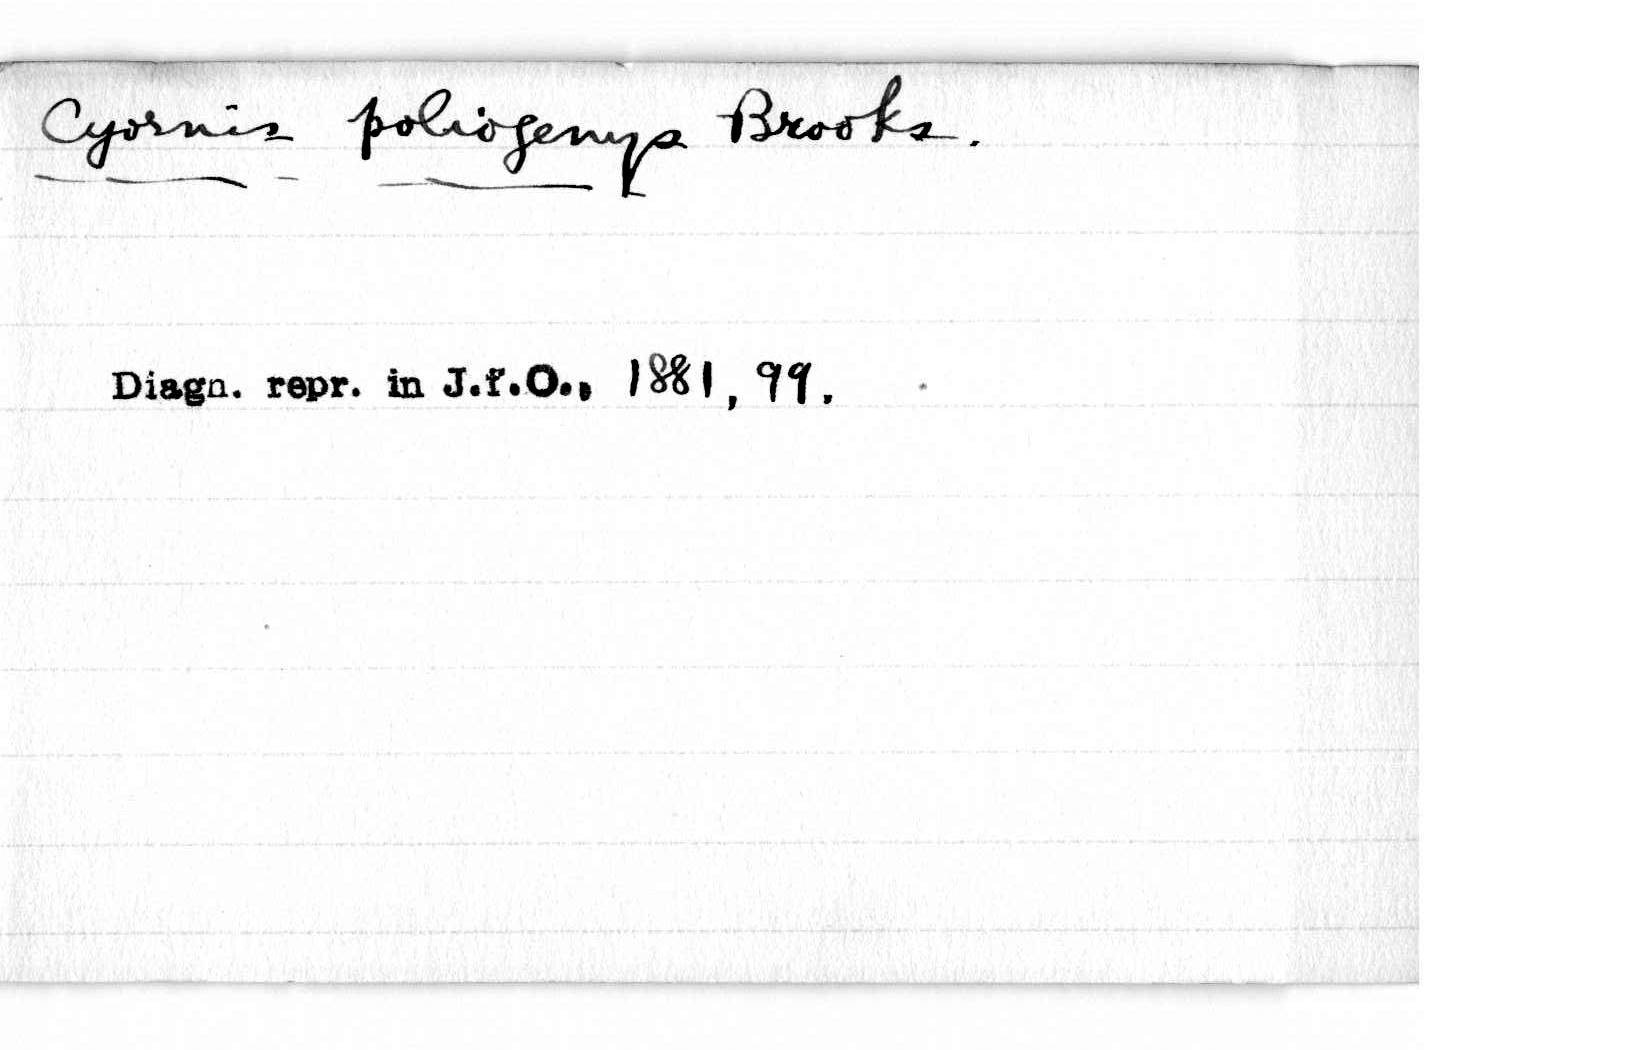 Cyornis poliogenys Brooks.
Diagn. repr. in J.f.O., 1881, 99.